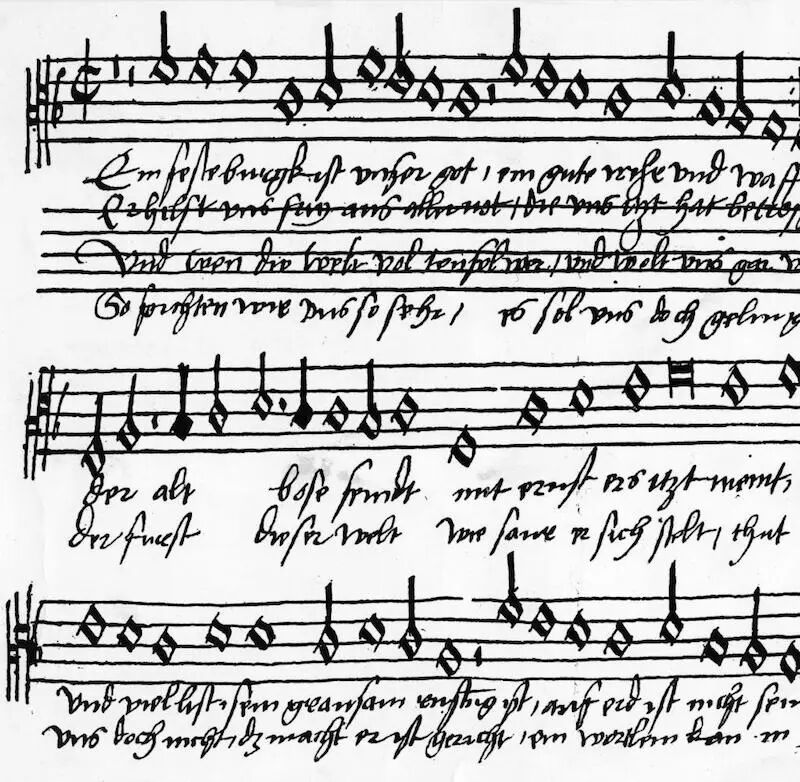 Ein feste burgk ist unser got / ein gute wehr und waff
Er hilft uns frey aus aller not / die uns itzt hat betrof
Und wen die welt vol teufel wer / und wolt uns gar v
So furchten wir uns so sehr / es sol uns doch geling
der alt bose feindt mit ernst ers itzt meint,
der furst dieser welt wie saur er sich stelt / thut
und viel list, sein grausam rustung ist, auf erd ist nicht sein
uns doch nicht, dz macht er ist gericht / ein wortlein kan in